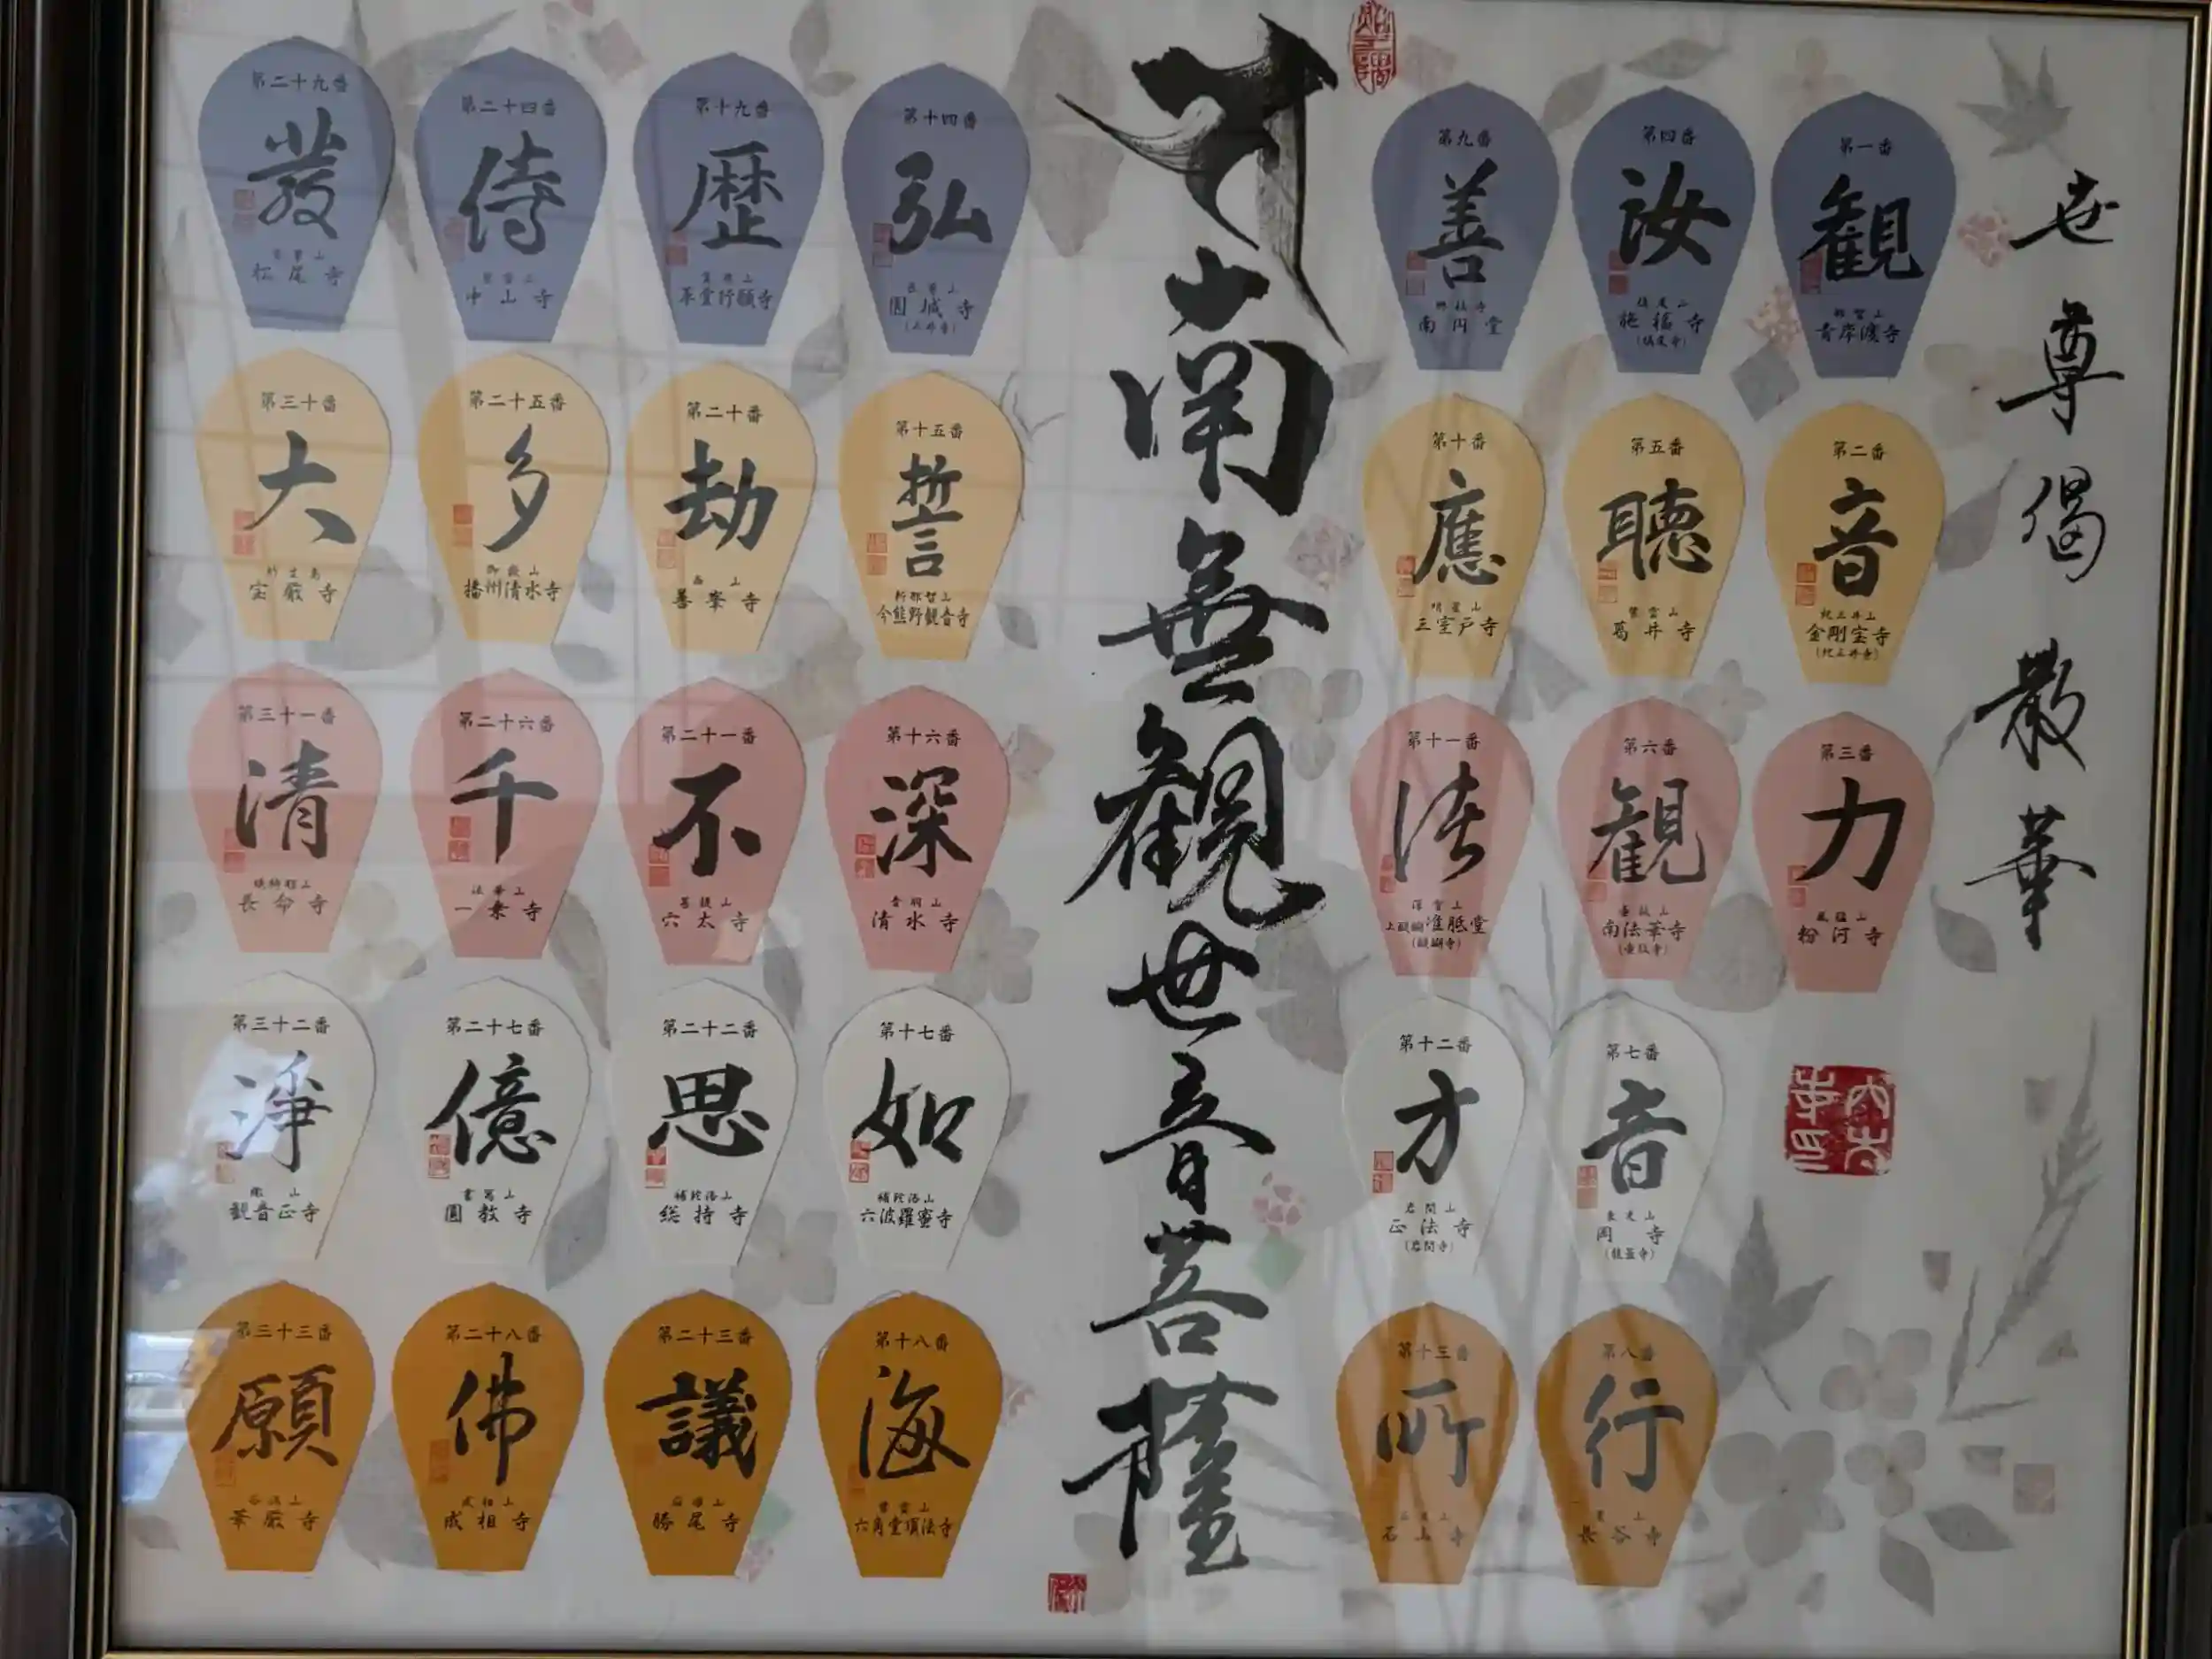 世尊偈 散華
第一番
観
那智山
青岸渡寺
第二番
音
紀三井山
金剛宝寺
(紀三井寺)
第三番
力
風猛山
粉河寺
第四番
汝
槙尾山
施福寺
(槙尾寺)
第五番
聴
紫雲山
葛井寺
第六番
観
壷阪山
南法華寺
(壷阪寺)
第七番
音
東光山
岡寺
(龍蓋寺)
第八番
行
豊山
長谷寺
第九番
善
興福寺
南円堂
第十番
應
明星山
三室戸寺
第十一番
諸
深雪山
上醍醐准胝堂
(醍醐寺)
第十二番
方
岩間山
正法寺
(岩間寺)
第十三番
所
石光山
石山寺
南無觀世音菩薩
第十四番
弘
長等山
圓城寺
(三井寺)
第十五番
誓
新那智山
今熊野観音寺
第十六番
深
音羽山
清水寺
第十七番
如
補陀洛山
六波羅蜜寺
第十八番
海
紫雲山
六角堂頂法寺
第十九番
歴
霊麀山
革堂行願寺
第二十番
劫
西山
善峯寺
第二十一番
不
菩提山
穴太寺
第二十二番
思
補陀洛山
総持寺
第二十三番
議
応頂山
勝尾寺
第二十四番
侍
紫雲山
中山寺
第二十五番
多
御嶽山
播州清水寺
第二十六番
千
法華山
一乗寺
第二十七番
億
書寫山
圓教寺
第二十八番
佛
成相山
成相寺
第二十九番
發
青葉山
松尾寺
第三十番
大
竹生島
宝厳寺
第三十一番
清
姨綺耶山
長命寺
第三十二番
淨
繖山
観音正寺
第三十三番
願
谷汲山
華厳寺